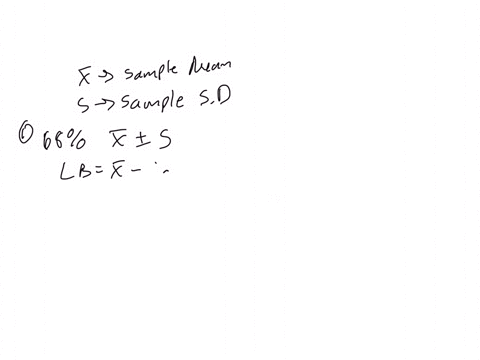 x̄ → sample Mean
S → sample S.D
① 68% x̄ ± S
LB = x̄ -